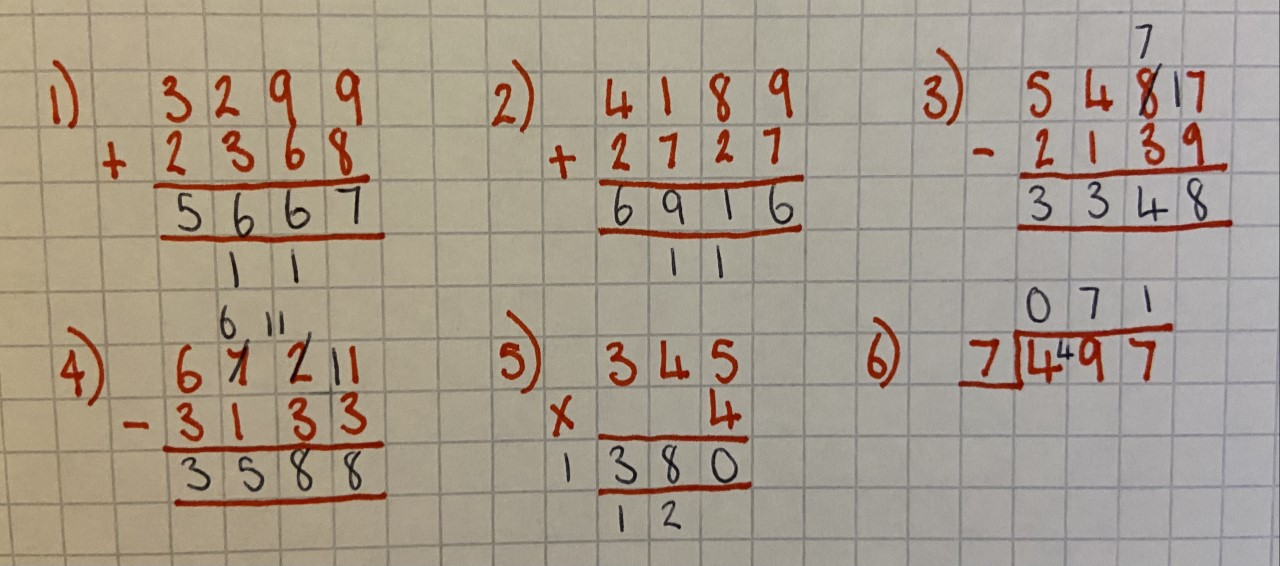 1) 3 2 9 9
+ 2 3 6 8
5 6 6 7
1 1
2) 4 1 8 9
+ 2 7 2 7
6 9 1 6
1 1
7
3) 5 4 8 17
- 2 1 3 9
3 3 4 8
6 11
4) 6 7 2 11
- 3 1 3 3
3 5 8 8
5) 3 4 5
x 4
1 3 8 0
1 2
0 7 1
6) 7 4 4 9 7